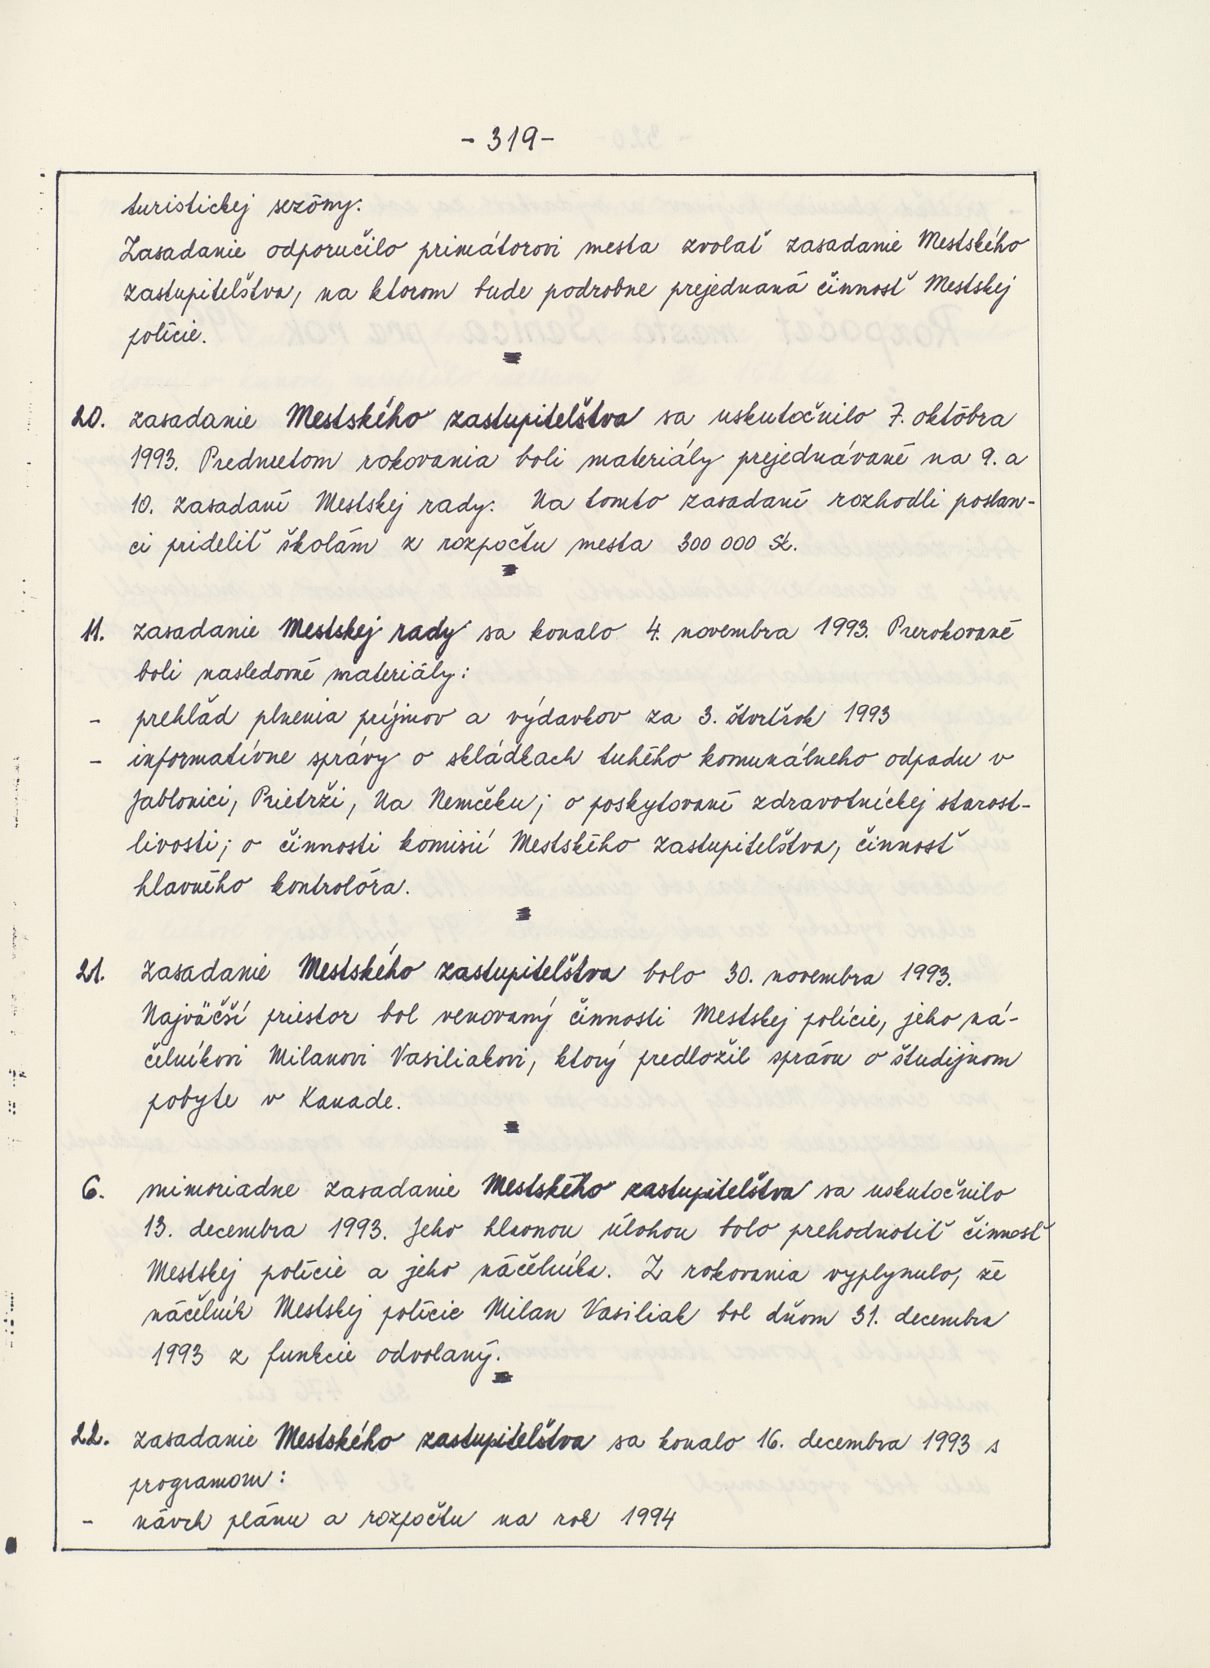 - 319 -
turistickej sezóny.
Zasadanie odporučilo primátorovi mesta zvolať zasadanie Mestského
zastupiteľštva, na ktorom bude podrobne prejednaná činnosť Mestskej
polície.
20. zasadanie Mestského zastupiteľštva sa uskutočnilo 7. októbra
1993. Predmetom rokovania boli materiály prejednávané na 9. a
10. zasadaní Mestskej rady. Na tomto zasadaní rozhodli poslan-
ci prideliť školám z rozpočtu mesta 300 000 Sk.
11. zasadanie Mestskej rady sa konalo 4. novembra 1993. Prerokované
boli nasledovné materiály:
- prehľad plnenia príjmov a výdavkov za 3. štvrťrok 1993
- informatívne správy o skládkach tuhého komunálneho odpadu v
Jablonici, Prietrži, Na Nemčeku; o poskytovaní zdravotníckej starost-
livosti; o činnosti komisií Mestského zastupiteľštva, činnosť
hlavného kontrolóra.
21. zasadanie Mestského zastupiteľštva bolo 30. novembra 1993.
Najväčší priestor bol venovaný činnosti Mestskej polície, jeho ná-
čelníkovi Milanovi Vasiliakovi, ktorý predložil správu o študijnom
pobyte v Kanade.
6. mimoriadne zasadanie Mestského zastupiteľštva sa uskutočnilo
13. decembra 1993. Jeho hlavnou úlohou bolo prehodnotiť činnosť
Mestskej polície a jeho náčelníka. Z rokovania vyplynulo, že
náčelník Mestskej polície Milan Vasiliak bol dňom 31. decembra
1993 z funkcie odvolaný.
22. zasadanie Mestského zastupiteľštva sa konalo 16. decembra 1993 s
programom:
- návrh plánu a rozpočtu na rok 1994